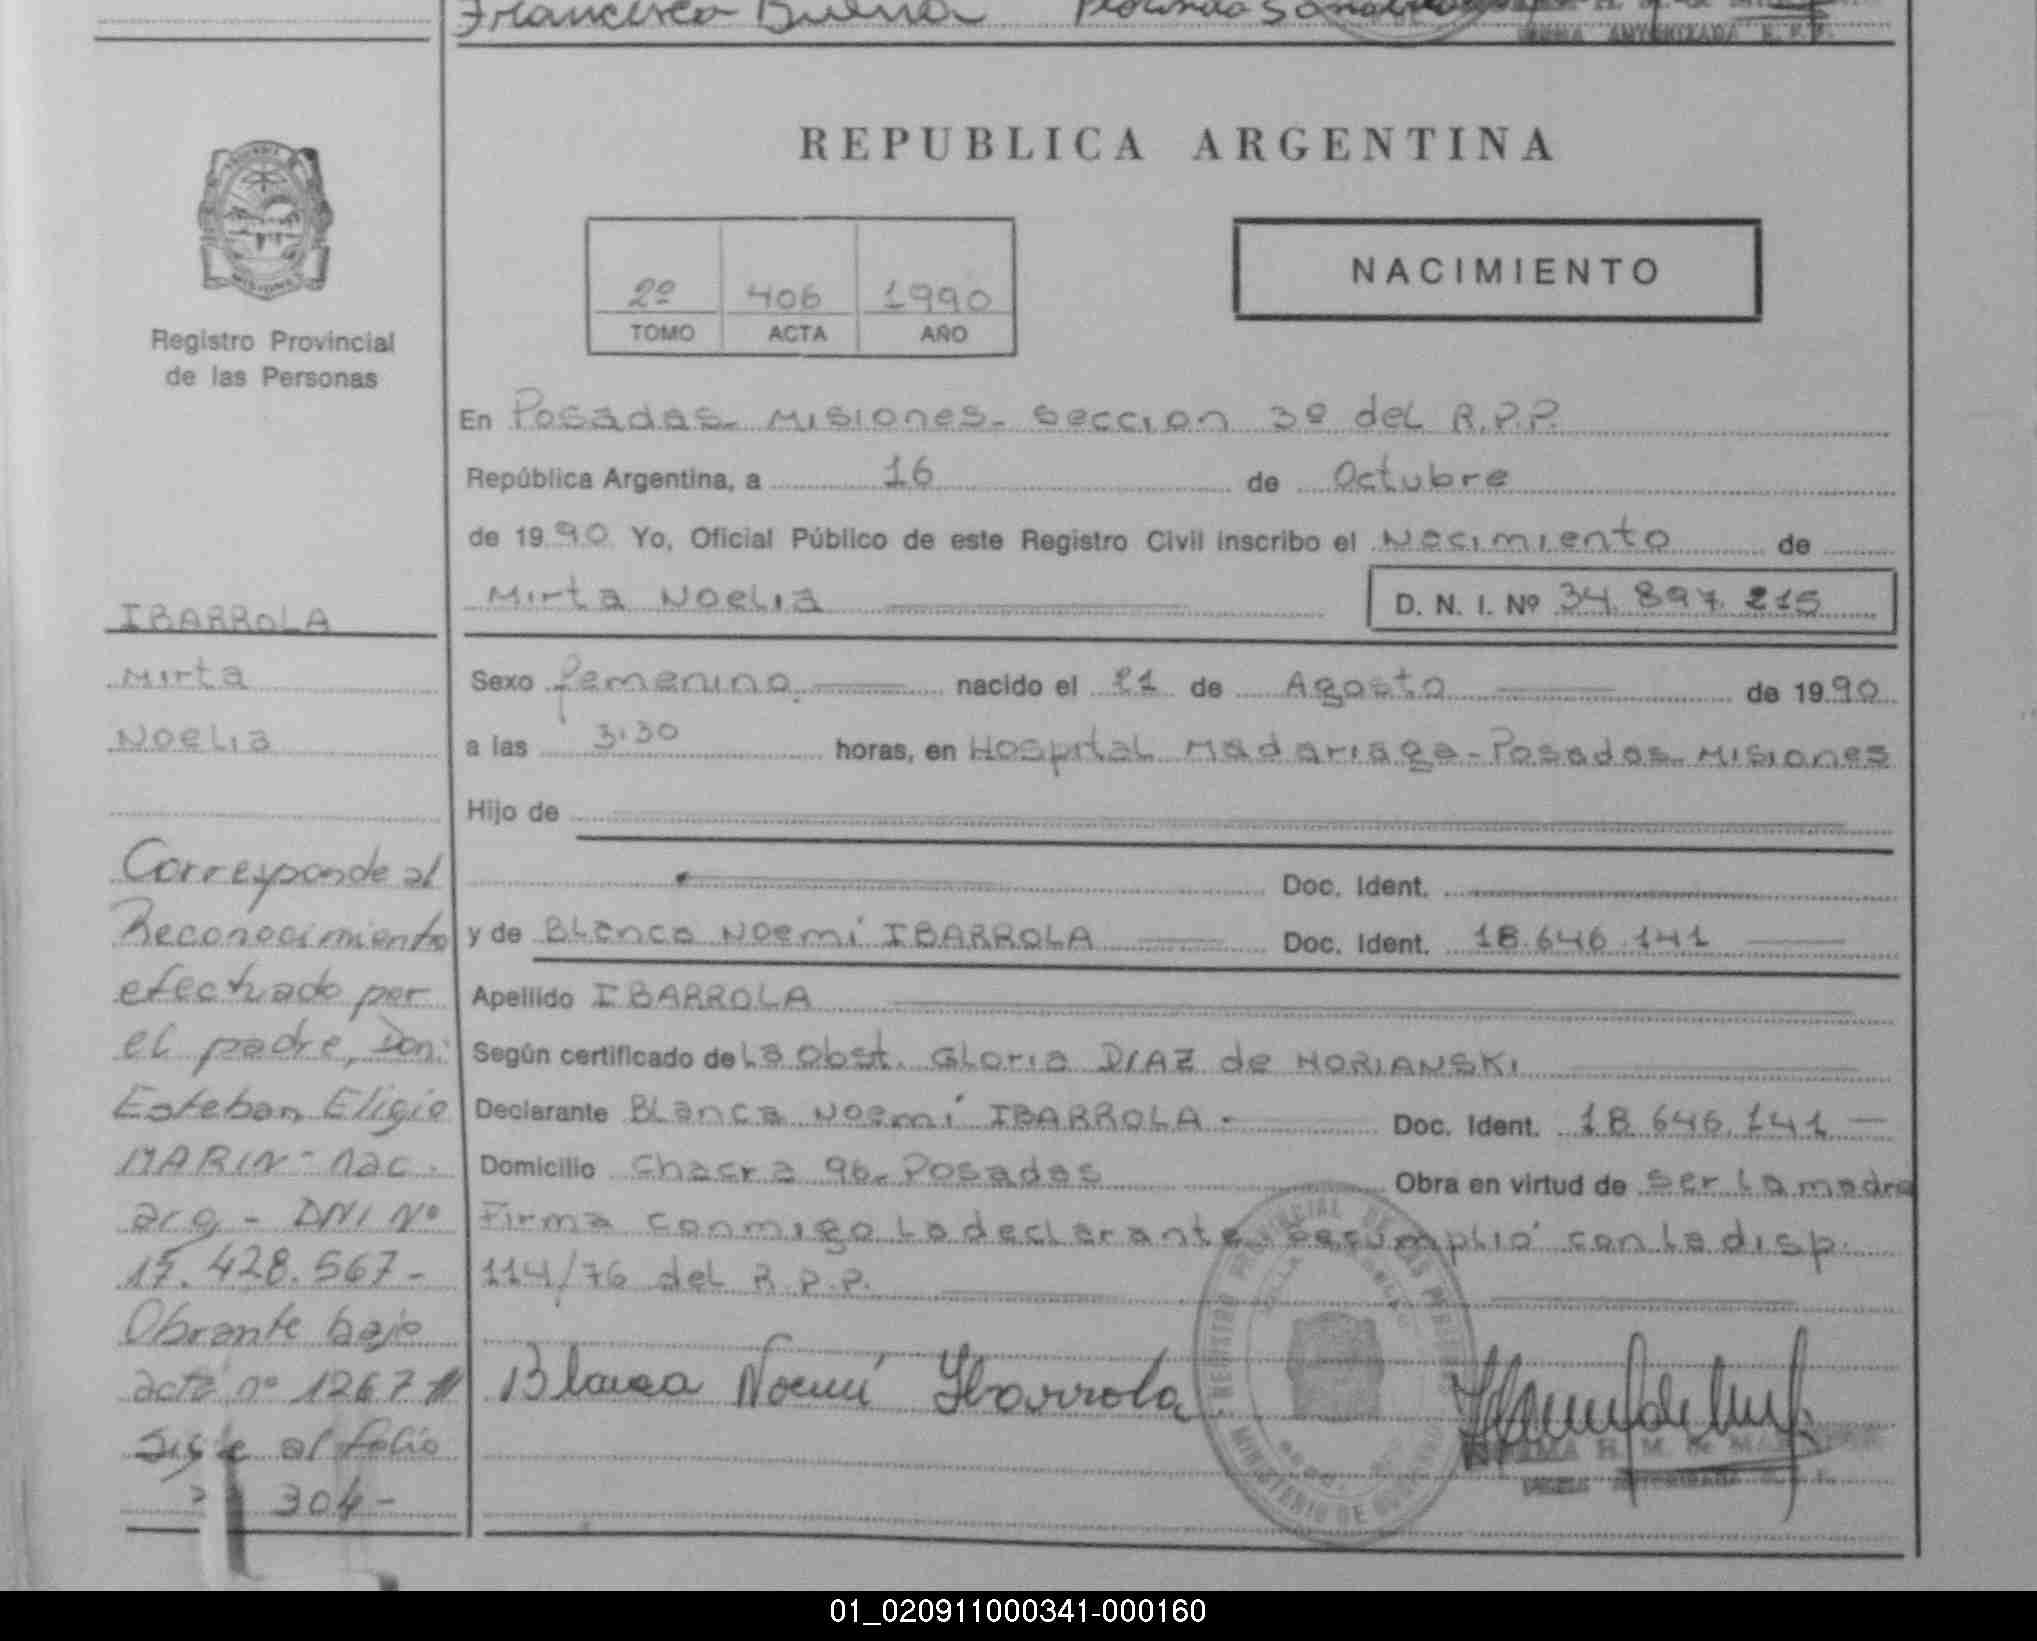 Francisca
REPUBLICA ARGENTINA
NACIMIENTO
2º 406 1990
TOMO ACTA AÑO
Registro Provincial
de las Personas
En Posadas - Misiones - Seccion 3º del R.P.P.
República Argentina, a 16 de Octubre
de 1990 Yo, Oficial Público de este Registro Civil inscribo el Nacimiento de
Mirta Noelia D. N. I. Nº 34.897.215
IBARROLA
Mirta
Noelia
Sexo femenino nacido el 21 de Agosto de 1990
a las 3:30 horas, en Hospital Madariaga - Posadas - Misiones
Hijo de
Doc. Ident.
y de Blanca Noemí IBARROLA Doc. Ident. 18.646.141
Apellido IBARROLA
Según certificado de La Obst. Gloria DIAZ de
Declarante Blanca Noemí IBARROLA - Doc. Ident. 18.646.141
Domicilio Chacra 96 - Posadas Obra en virtud de ser la madre
Firma conmigo la declarante. Se cumplió con la disp.
114/76 del R.P.P.
Blanca Noemí Ibarrola
Corresponde al
Reconocimiento
efectuado por
el padre, Don:
Esteban Eligio
MARIN - nac.
arg - DNI Nº
428.567 -
Obrante bajo
acta nº 1267
sigue al folio
304 -
REGISTRO PROVINCIAL DE LAS PERSONAS
MINISTERIO DE GOBIERNO
01_020911000341-000160